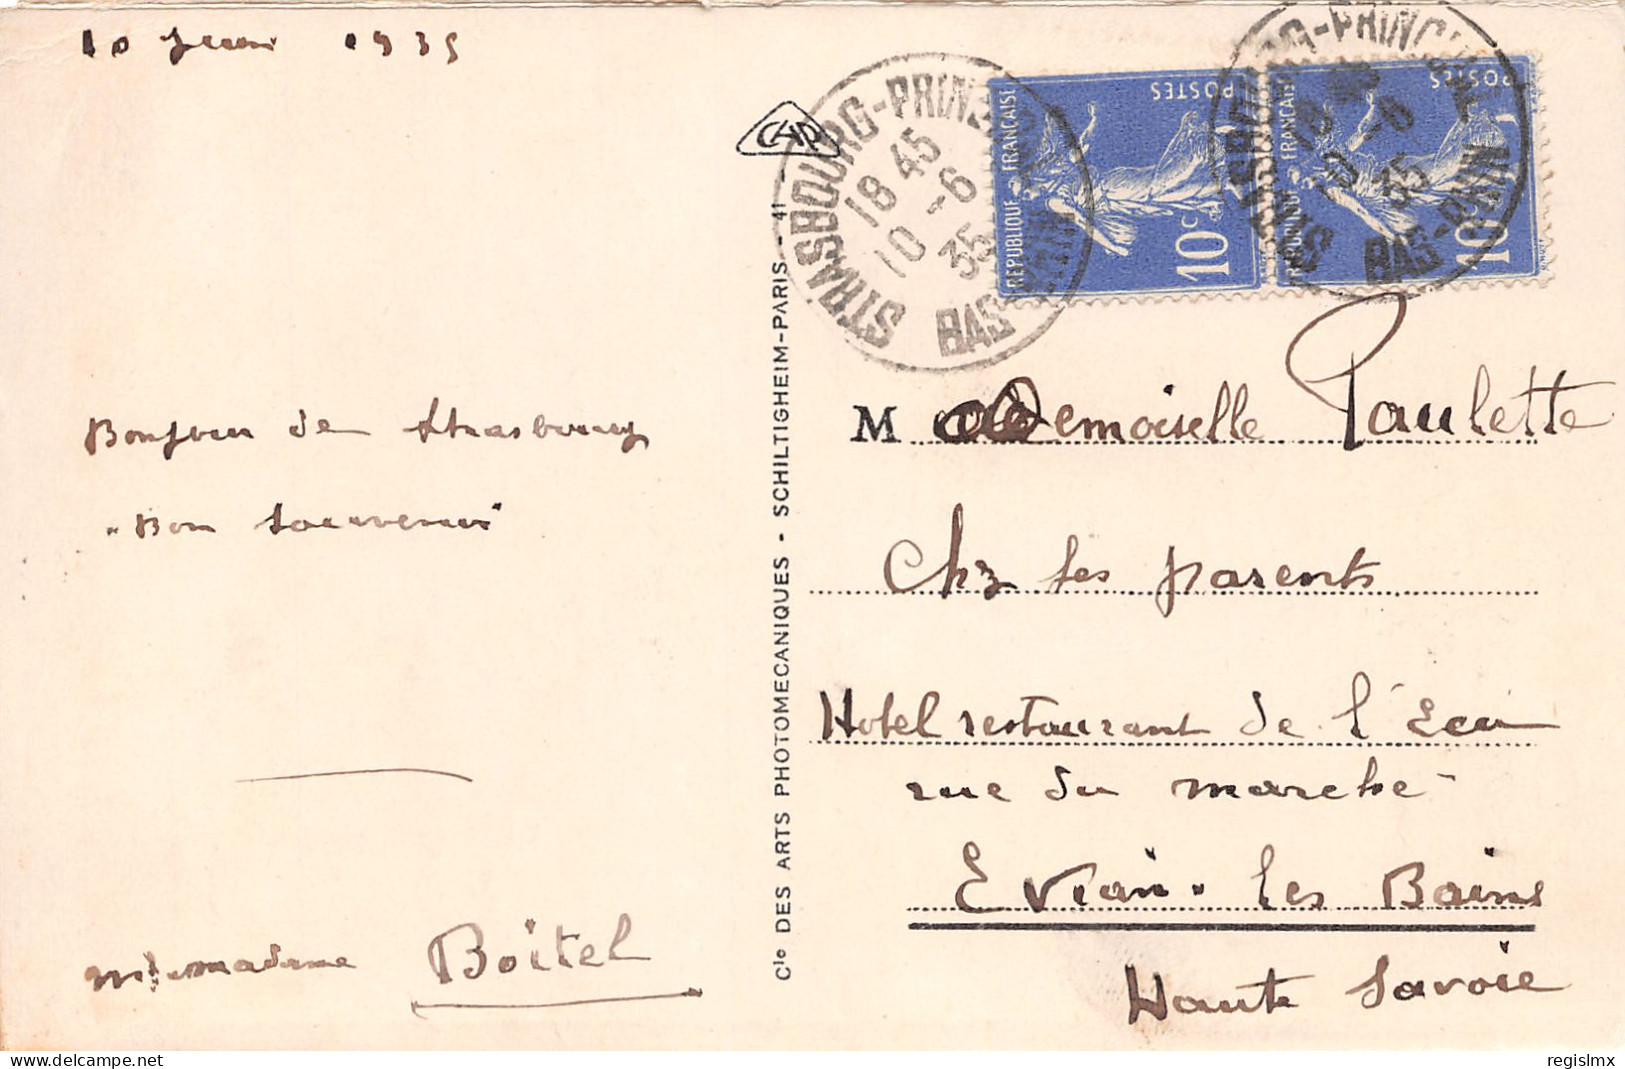 10 Juin 1935
Bonjour de Strasbourg
Bon Souvenir
Mr & madame Boitel
CAP
Cie DES ARTS PHOTOMECANIQUES - SCHILTIGHEIM-PARIS - 41
STRASBOURG-PRINCIPAL
18 45
10 -6
35
BAS-RHIN
REPUBLIQUE FRANCAISE
POSTES
10c
STRASBOURG-PRINCIPAL
18 45
10 -6
35
BAS-RHIN
REPUBLIQUE FRANCAISE
POSTES
10c
Mademoiselle Paulette
Chez ses parents
Hotel restaurant de l'Ecu
rue du marché
Evian-les Bains
Haute Savoie
delcampe.net
regislmx